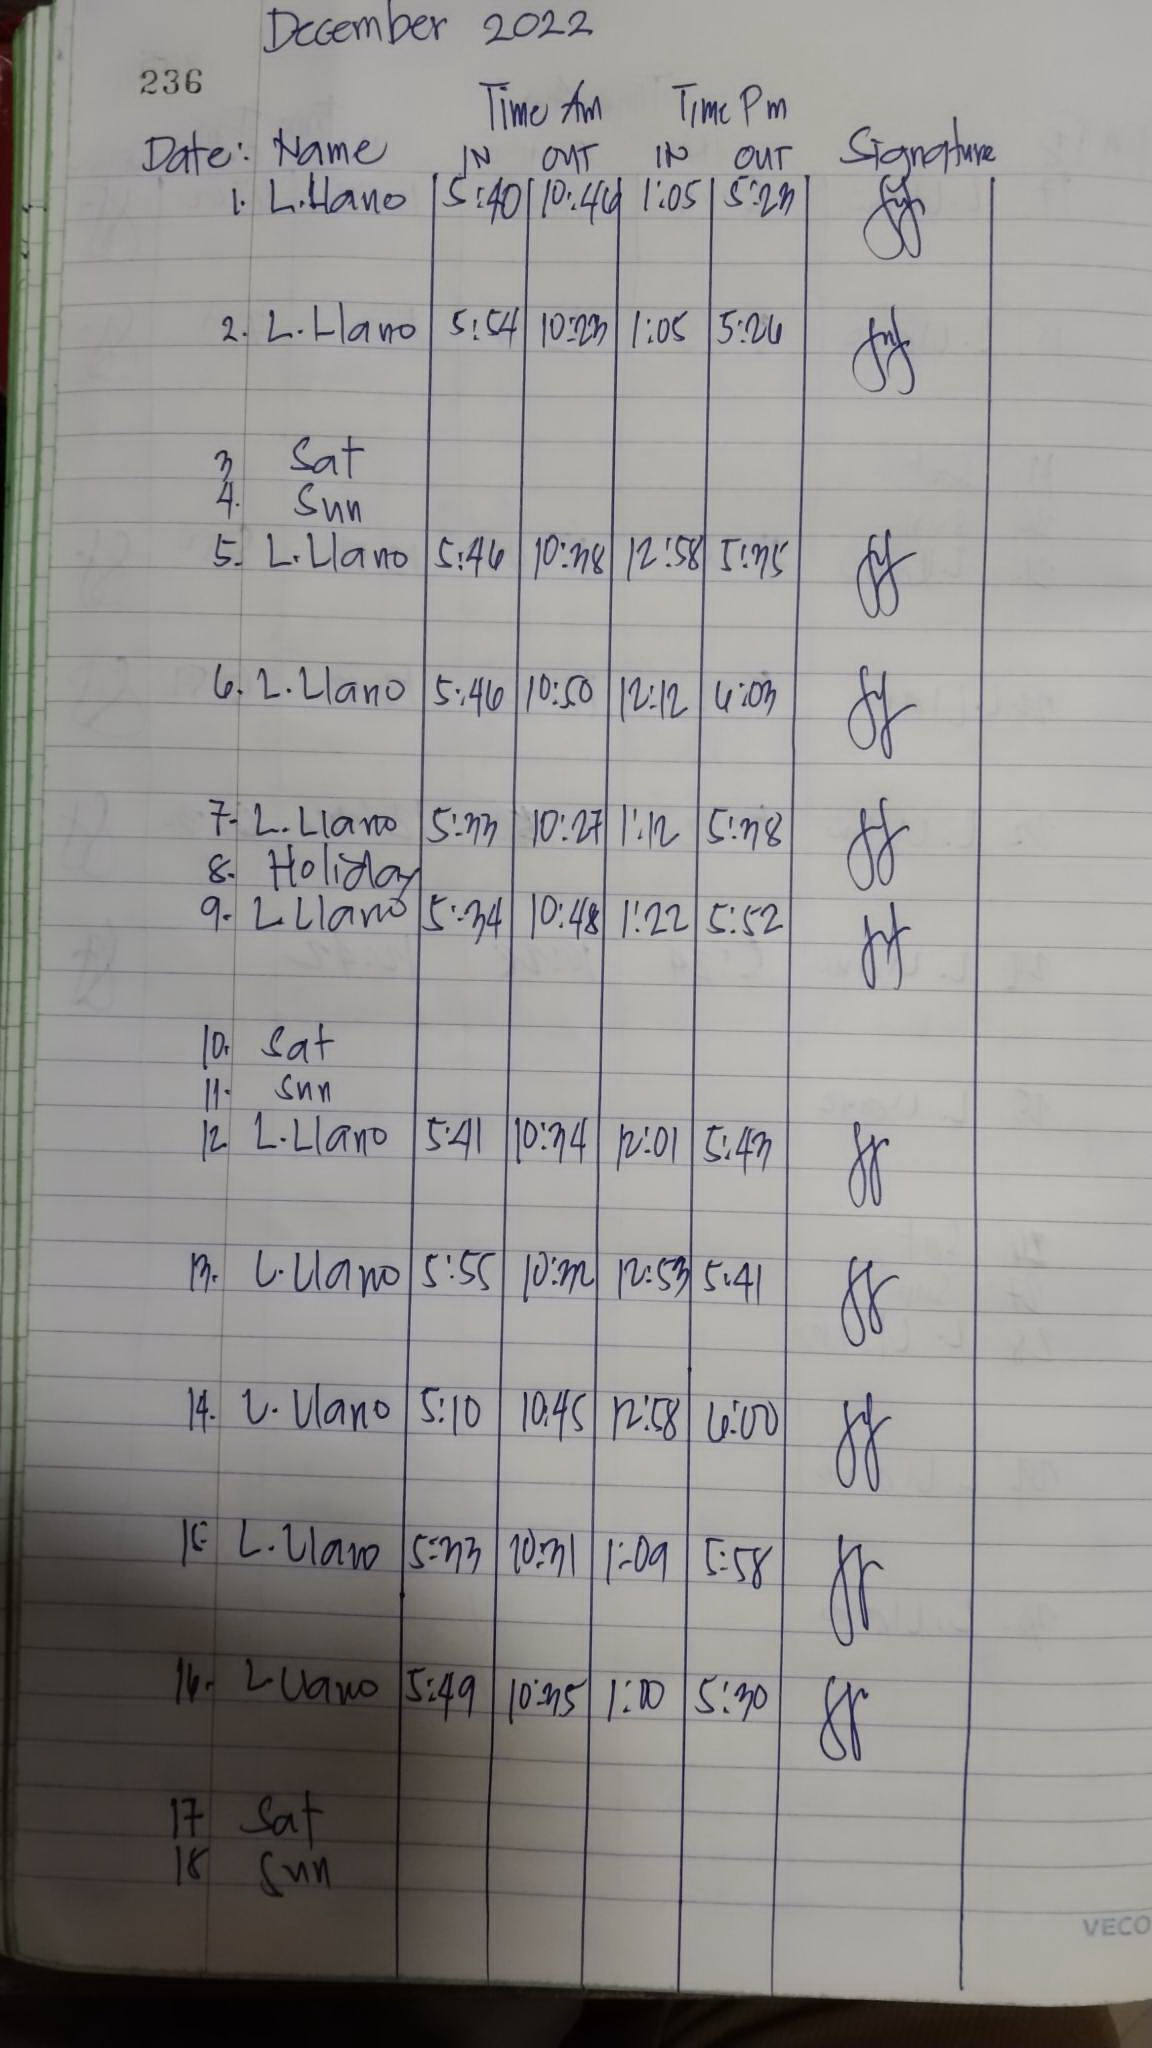 December 2022
236
Time Am Time Pm
Date: Name IN OUT IN OUT Signature
1. L.Llano 5:40 10:46 1:05 5:23
2. L.Llano 5:54 10:23 1:05 5:26
3 Sat
4. Sun
5. L.Llano 5:46 10:38 12:58 5:35
6. L.Llano 5:46 10:50 12:12 6:03
7. L.Llano 5:33 10:27 1:12 5:38
8. Holiday
9. L.Llano 5:34 10:48 1:22 5:52
10. Sat
11. Sun
12 L.Llano 5:41 10:34 12:01 5:43
13. L.Llano 5:55 10:32 12:53 5:41
14. L.Llano 5:10 10:45 12:58 6:00
15 L.Llano 5:33 10:31 1:09 5:58
16. L Llano 5:49 10:35 1:00 5:30
17 Sat
18 Sun
VECO